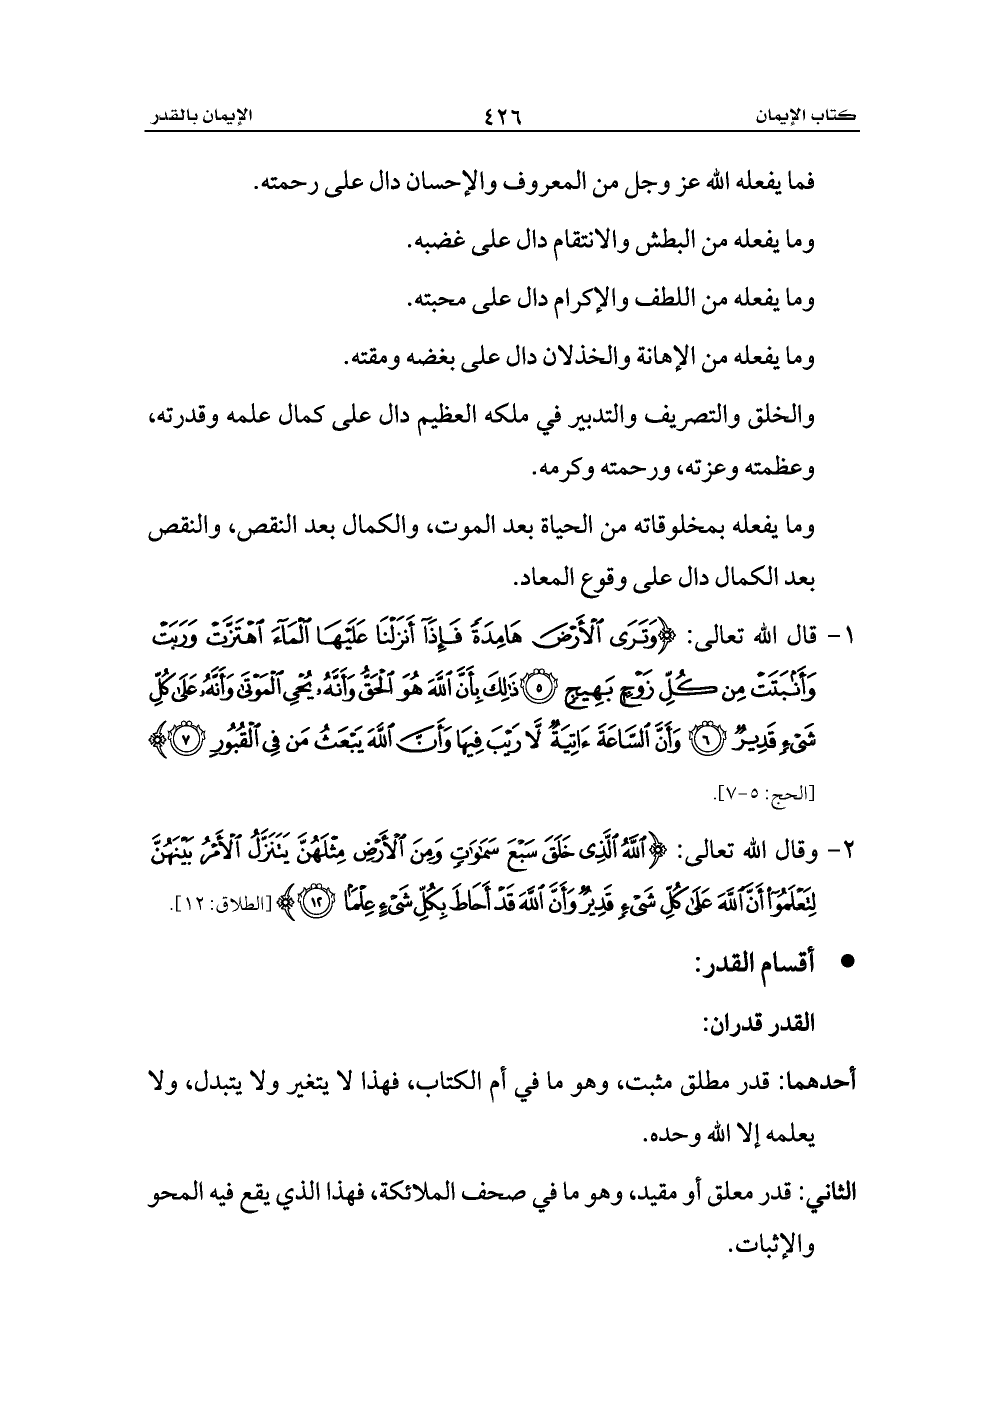 كتاب الإيمان ٤٢٦ الإيمان بالقدر
فما يفعله الله عز وجل من المعروف والإحسان دال على رحمته.
وما يفعله من البطش والانتقام دال على غضبه.
وما يفعله من اللطف والإكرام دال على محبته.
وما يفعله من الإهانة والخذلان دال على بغضه ومقته.
والخلق والتصريف والتدبير في ملكه العظيم دال على كمال علمه وقدرته،
وعظمته وعزته، ورحمته وكرمه.
وما يفعله بمخلوقاته من الحياة بعد الموت، والكمال بعد النقص، والنقص
بعد الكمال دال على وقوع المعاد.
١- قال الله تعالى: ﴿وَتَرَى ٱلْأَرْضَ هَامِدَةً فَإِذَآ أَنزَلْنَا عَلَيْهَا ٱلْمَآءَ ٱهْتَزَّتْ وَرَبَتْ
وَأَنۢبَتَتْ مِن كُلِّ زَوْجٍۭ بَهِيجٍ ۝٥ ذَٰلِكَ بِأَنَّ ٱللَّهَ هُوَ ٱلْحَقُّ وَأَنَّهُۥ يُحْىِ ٱلْمَوْتَىٰ وَأَنَّهُۥ عَلَىٰ كُلِّ
شَىْءٍ قَدِيرٌ ۝٦ وَأَنَّ ٱلسَّاعَةَ ءَاتِيَةٌ لَّا رَيْبَ فِيهَا وَأَنَّ ٱللَّهَ يَبْعَثُ مَن فِى ٱلْقُبُورِ ۝٧﴾
[الحج: ٥-٧].
٢- وقال الله تعالى: ﴿ٱللَّهُ ٱلَّذِى خَلَقَ سَبْعَ سَمَٰوَٰتٍ وَمِنَ ٱلْأَرْضِ مِثْلَهُنَّ يَتَنَزَّلُ ٱلْأَمْرُ بَيْنَهُنَّ
لِتَعْلَمُوٓا۟ أَنَّ ٱللَّهَ عَلَىٰ كُلِّ شَىْءٍ قَدِيرٌ وَأَنَّ ٱللَّهَ قَدْ أَحَاطَ بِكُلِّ شَىْءٍ عِلْمًۢا ۝١٢﴾ [الطلاق: ١٢].
● أقسام القدر:
القدر قدران:
أحدهما: قدر مطلق مثبت، وهو ما في أم الكتاب، فهذا لا يتغير ولا يتبدل، ولا
يعلمه إلا الله وحده.
الثاني: قدر معلق أو مقيد، وهو ما في صحف الملائكة، فهذا الذي يقع فيه المحو
والإثبات.